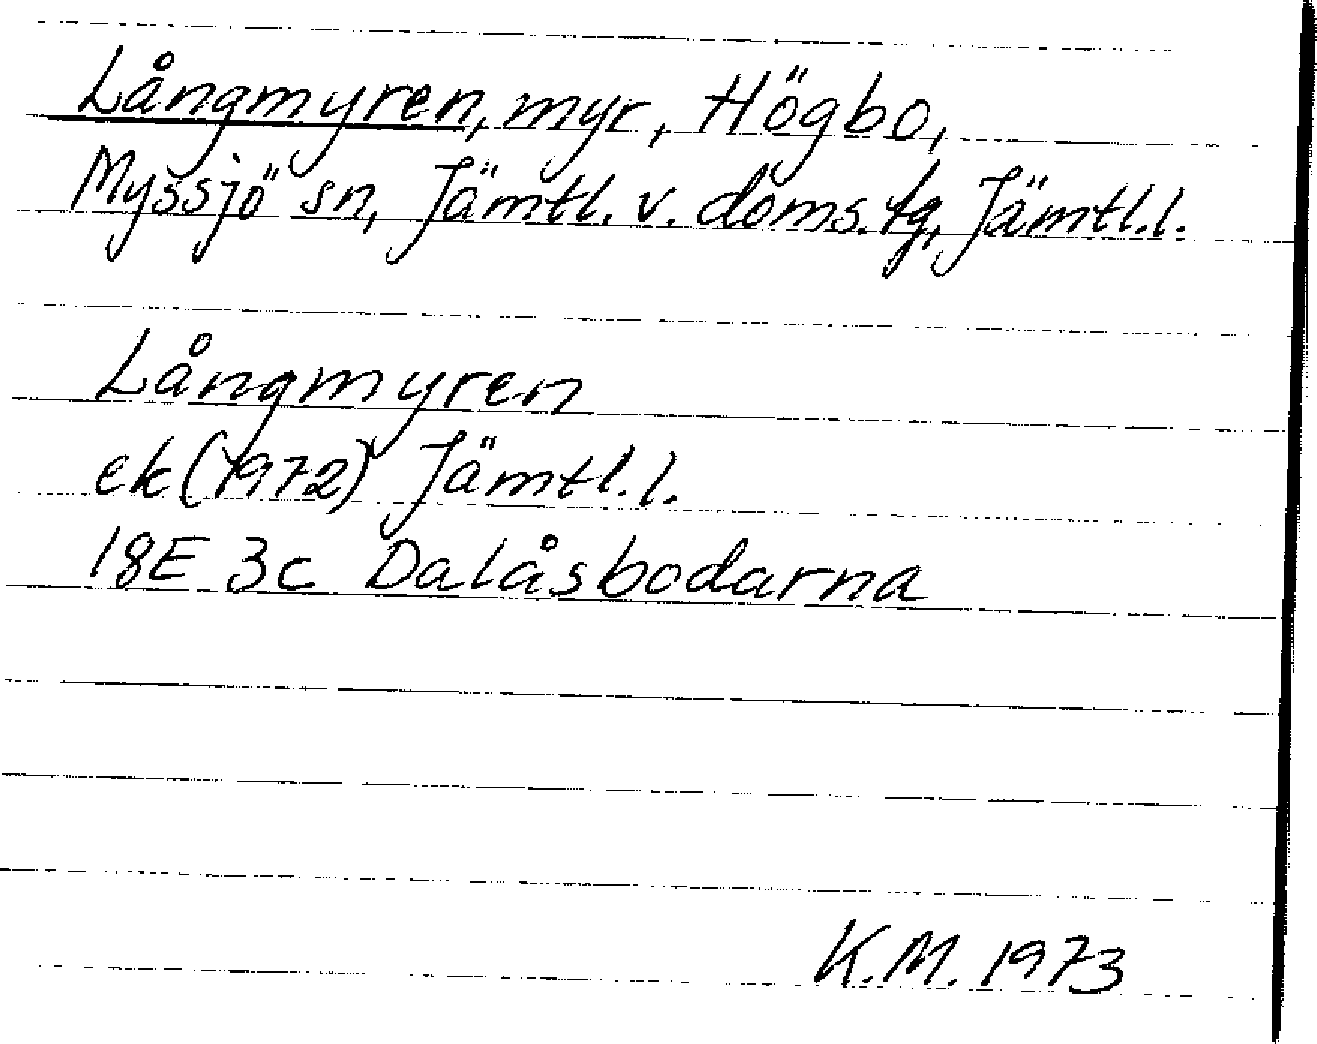 Långmyren, myr, Högbo,
Myssjö sn, Jämtl. v. doms. tg, Jämtl.l.
Långmyren
ek (1972) Jämtl. l.
18E 3c Dalåsbodarna
K.M. 1973